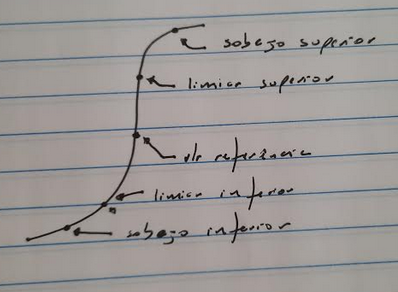 sobejo superior
limiar superior
vlr referência
limiar inferior
sobejo inferior